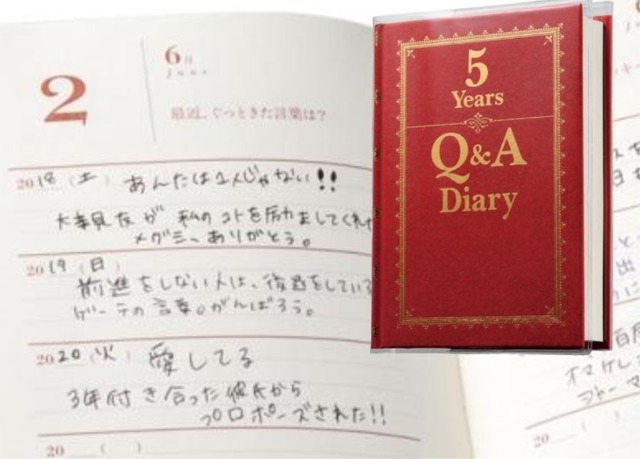 2
6月
June
最近、ぐっときた言葉は?
2018(土) あんたは1人じゃない!!
大親友が 私のコトを励ましてくれた
メグミーありがとう。
2019(日)
前進をしない人は、後退をしている
ゲーテの言葉。がんばろう。
2020(火) 愛してる
3年付き合った彼氏から
プロポーズされた!!
20 ( )
5
Years
Q&A
Diary
20